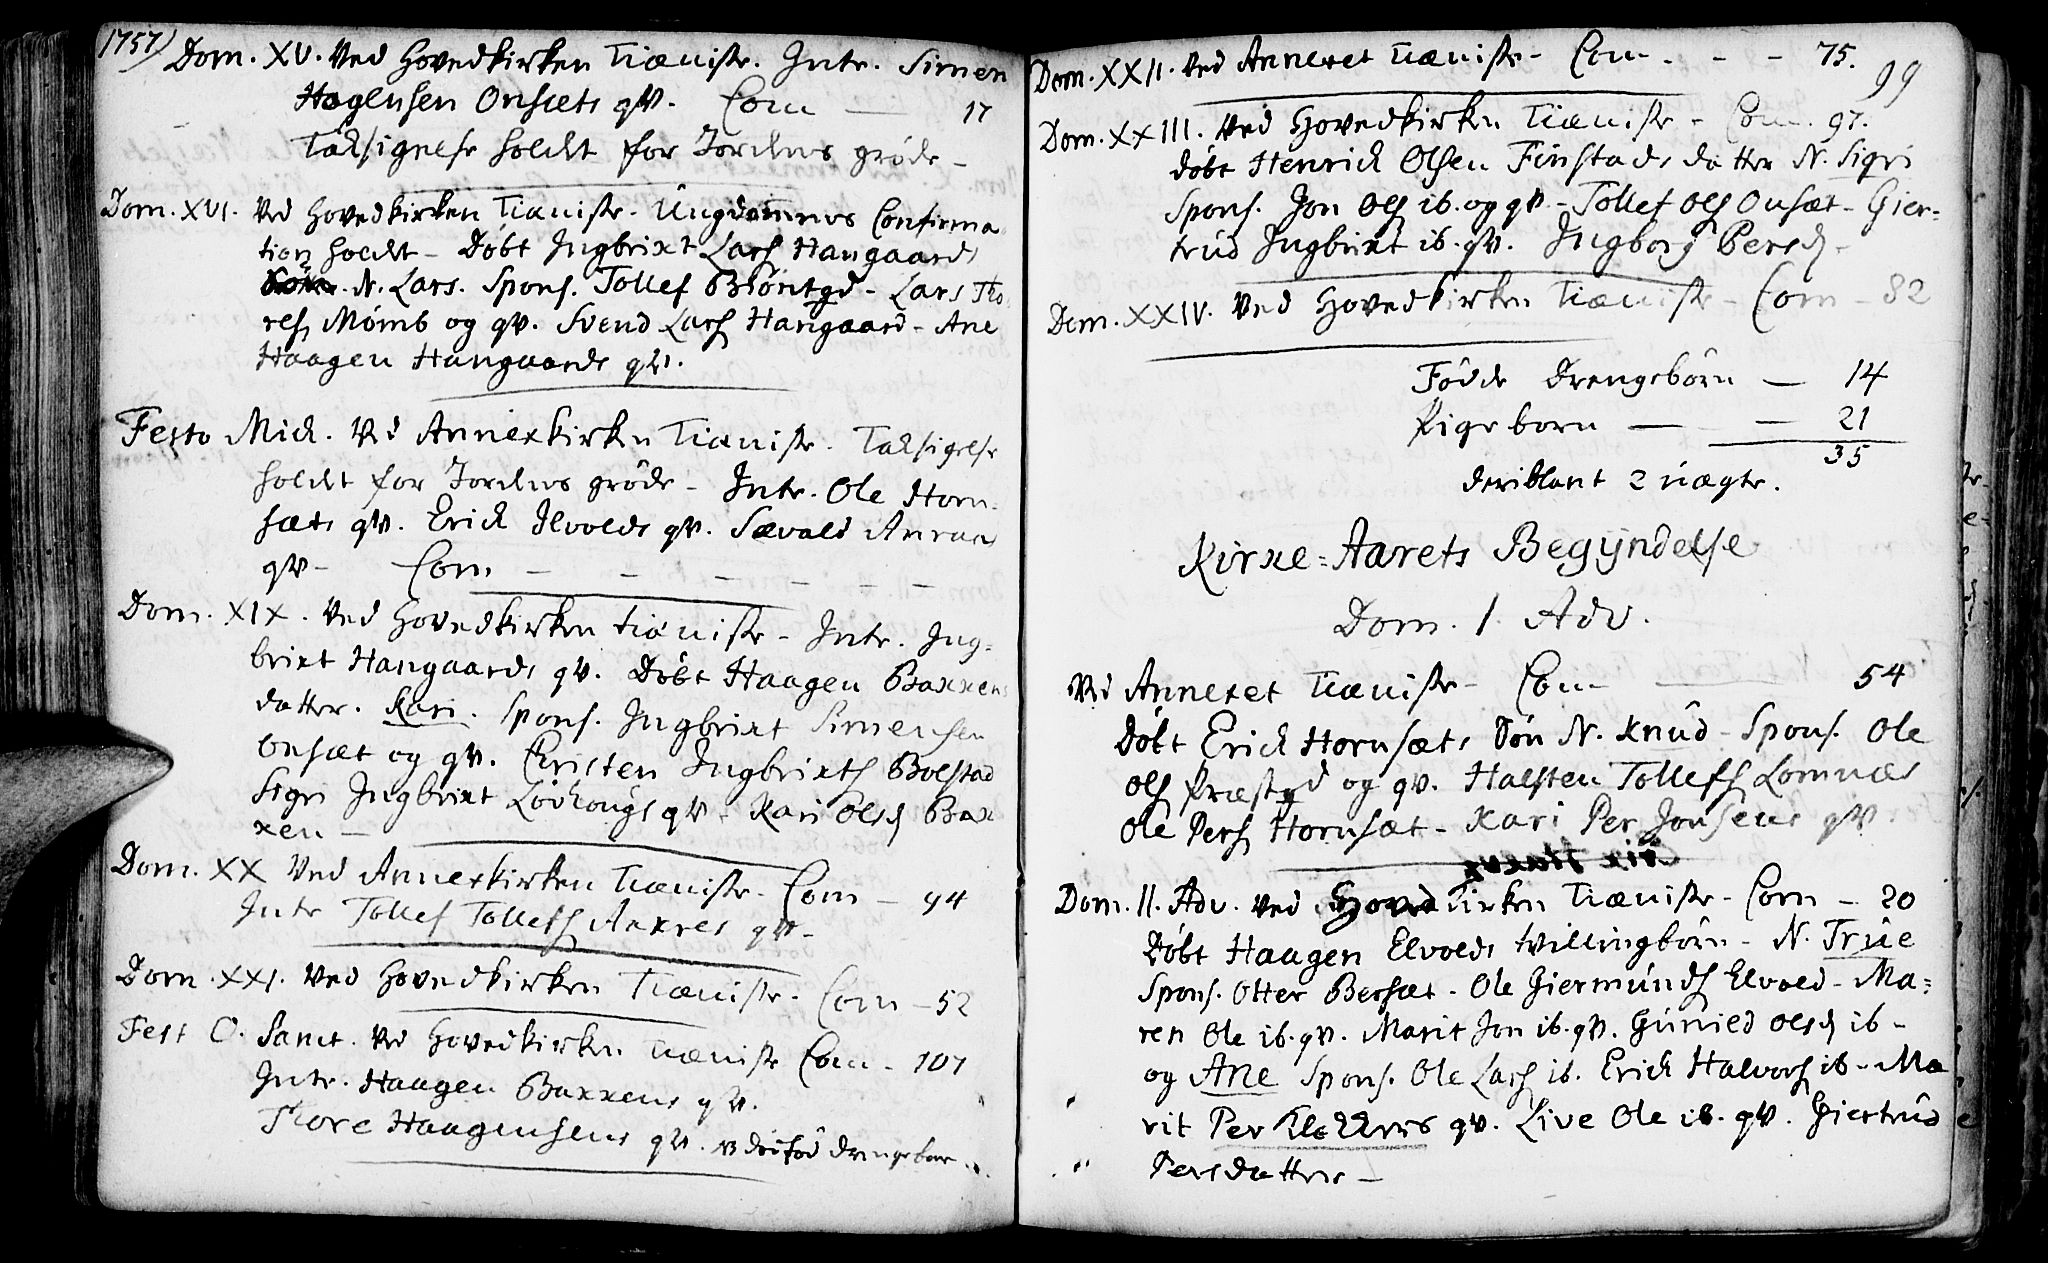 1757)
Dom. XV. Ved Hovedkirken Tieniste. Intr. Simen
Hogensen Onsets qv. Com — 17
Taksigelse holdt for Jordens grøde —
Dom. XVI. Ved Hovedkirken Tieniste. Ungdommens Confirma
tion holdt - Døbt Ingbrixt Lars Hangaards
N. Lars. Spons. Tollef Biöntgd - Lars Tho
res Mömb og qv. Svend Lars Hangaard - Ane
Haagen Hangaards qv.
Festo Mich. Ved Annexkirken Tieniste. Taksigelse
holdt for Jordens grøde - Intr. Ole Horn
sæts qv. Erich Ilvolds qv. Sævald
qv - Com — — — — — —
Dom. XIX. Ved Hovedkirken Tieniste - Intr. Ing-
brixt Hangaards qv. Døbt Haagen Baxxens
datter. Kari. Spons. Ingbrixt Simensen
Onsæt og qv. Christen Ingbrixts Bolstad
Sigri Ingbrixt qv - Kari Olsd Bax
xen —
Dom. XX Ved Annexkirken Tieniste - Com — 94
Intr Tollef Tollefs Aaxres qv -
Dom. XXI. Ved Hovedkirken Tieniste - Com — 52
Fest O. Sanct. Ved Hovedkirken Tieniste Com - 107
Intr. Haagen Baxxens qv.
Thore Haagensens qv. dødfød drengebarn
Dom. XXII. Ved Annexet Tieniste - Com - - - 75.
99
Dom. XXIII. Ved Hovedkirken Tieniste - Com. 97.
døbt Henrich Olsen Finstads datter N. Sigri
Spons. Jon Ols ib. og qv - Tollef Ols Onsæt - Gier=
trud Ingbrixt ib. qv. Ingborg Persd -
Dom. XXIV. Ved Hovedkirken Tieniste - Com - 82
Födde Drengebörn — 14
Pigebörn — — 21
35
deriblant 2 uægte.
Kirke=Aarets Begyndelse
Dom. 1. Adv.
Ved Annexet Tieniste - Com — 54
Döbt Erich Hornsæts Sön N. Knud - Spons. Ole
Ols Præstgd og qv. Halsten Tollefs Lomnæs
Ole Pers Hornsæt - Kari Per Jonsens qv.
Dom. II. Adv. Ved Hovedkirken Tieniste - Com — 20
Döbt Haagen Elvolds tvillingbörn - N. True
Spons. Otter Bersæt - Ole Giermunds Elvold - Ma=
ren Ole ib. qv. Marit Jon ib. qv. Gunild Olsd ib -
og Ane Spons. Ole Lars ib. Erich Halvors ib - Ma
rit Per qv. Live Ole ib. qv. Giertrud
Persdatter —